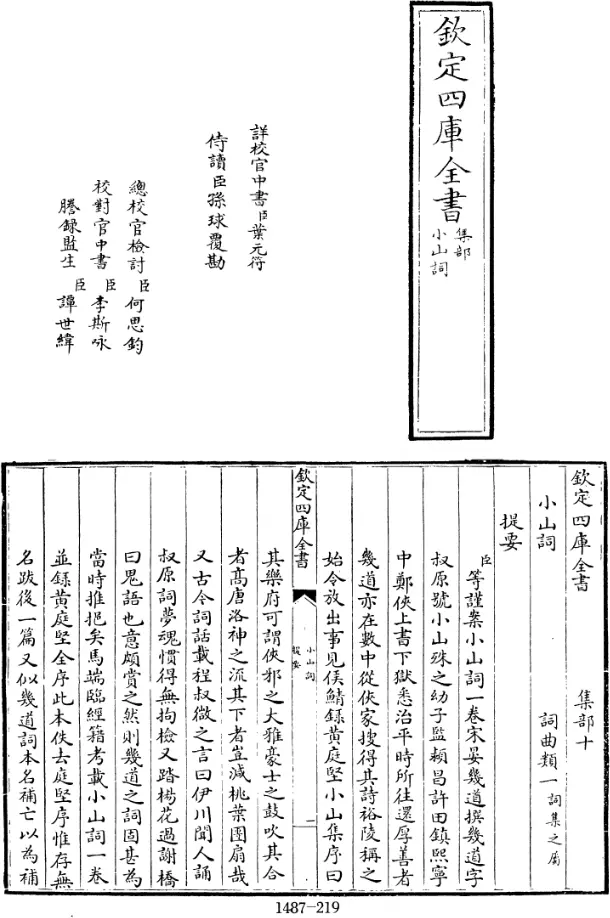 欽定四庫全書
集部
小山詞
詳校官中書臣葉元符
侍讀臣孫球覆勘
總校官檢討臣何思鈞
校對官中書臣李斯咏
謄録監生臣譚世緯
欽定四庫全書　集部十
小山詞　詞曲類一詞集之屬
提要
臣等謹案小山詞一卷宋晏幾道撰幾道字
叔原號小山殊之幼子監潁昌許田鎮熙寧
中鄭俠上書下獄悉治平時所往還厚善者
幾道亦在數中從俠家搜得其詩裕陵稱之
始令放出事見侯鯖録黄庭堅小山集序曰
欽定四庫全書
小山詞
提要
一
其樂府可謂俠邪之大雅豪士之鼓吹其合
者髙唐洛神之流其下者豈減桃葉團扇哉
又古今詞話載程叔微之言曰伊川聞人誦
叔原詞夢魂慣得無拘檢又踏楊花過謝橋
曰鬼語也意頗賞之然則幾道之詞固甚為
當時推挹矣馬端臨經籍考載小山詞一卷
並録黄庭堅全序此本佚去庭堅序惟存無
名跋後一篇又似幾道詞本名補亡以為補
1487-219